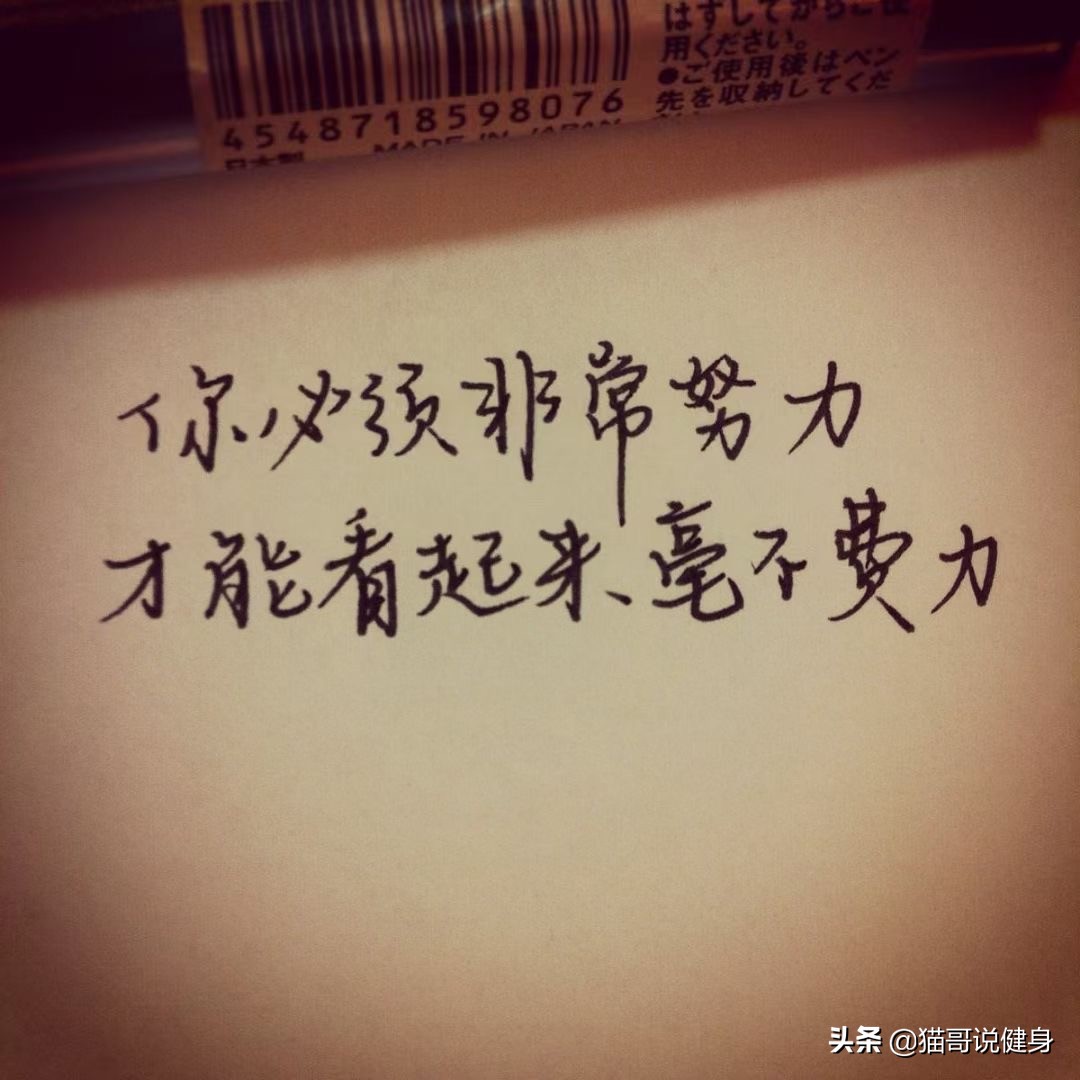 はずしてからご使
用ください。
●ご使用後はペン
先を収納してくだ
4548718598076
日本製 MADE IN JAPAN
你必须非常努力
才能看起来、毫不费力
头条 @猫哥说健身